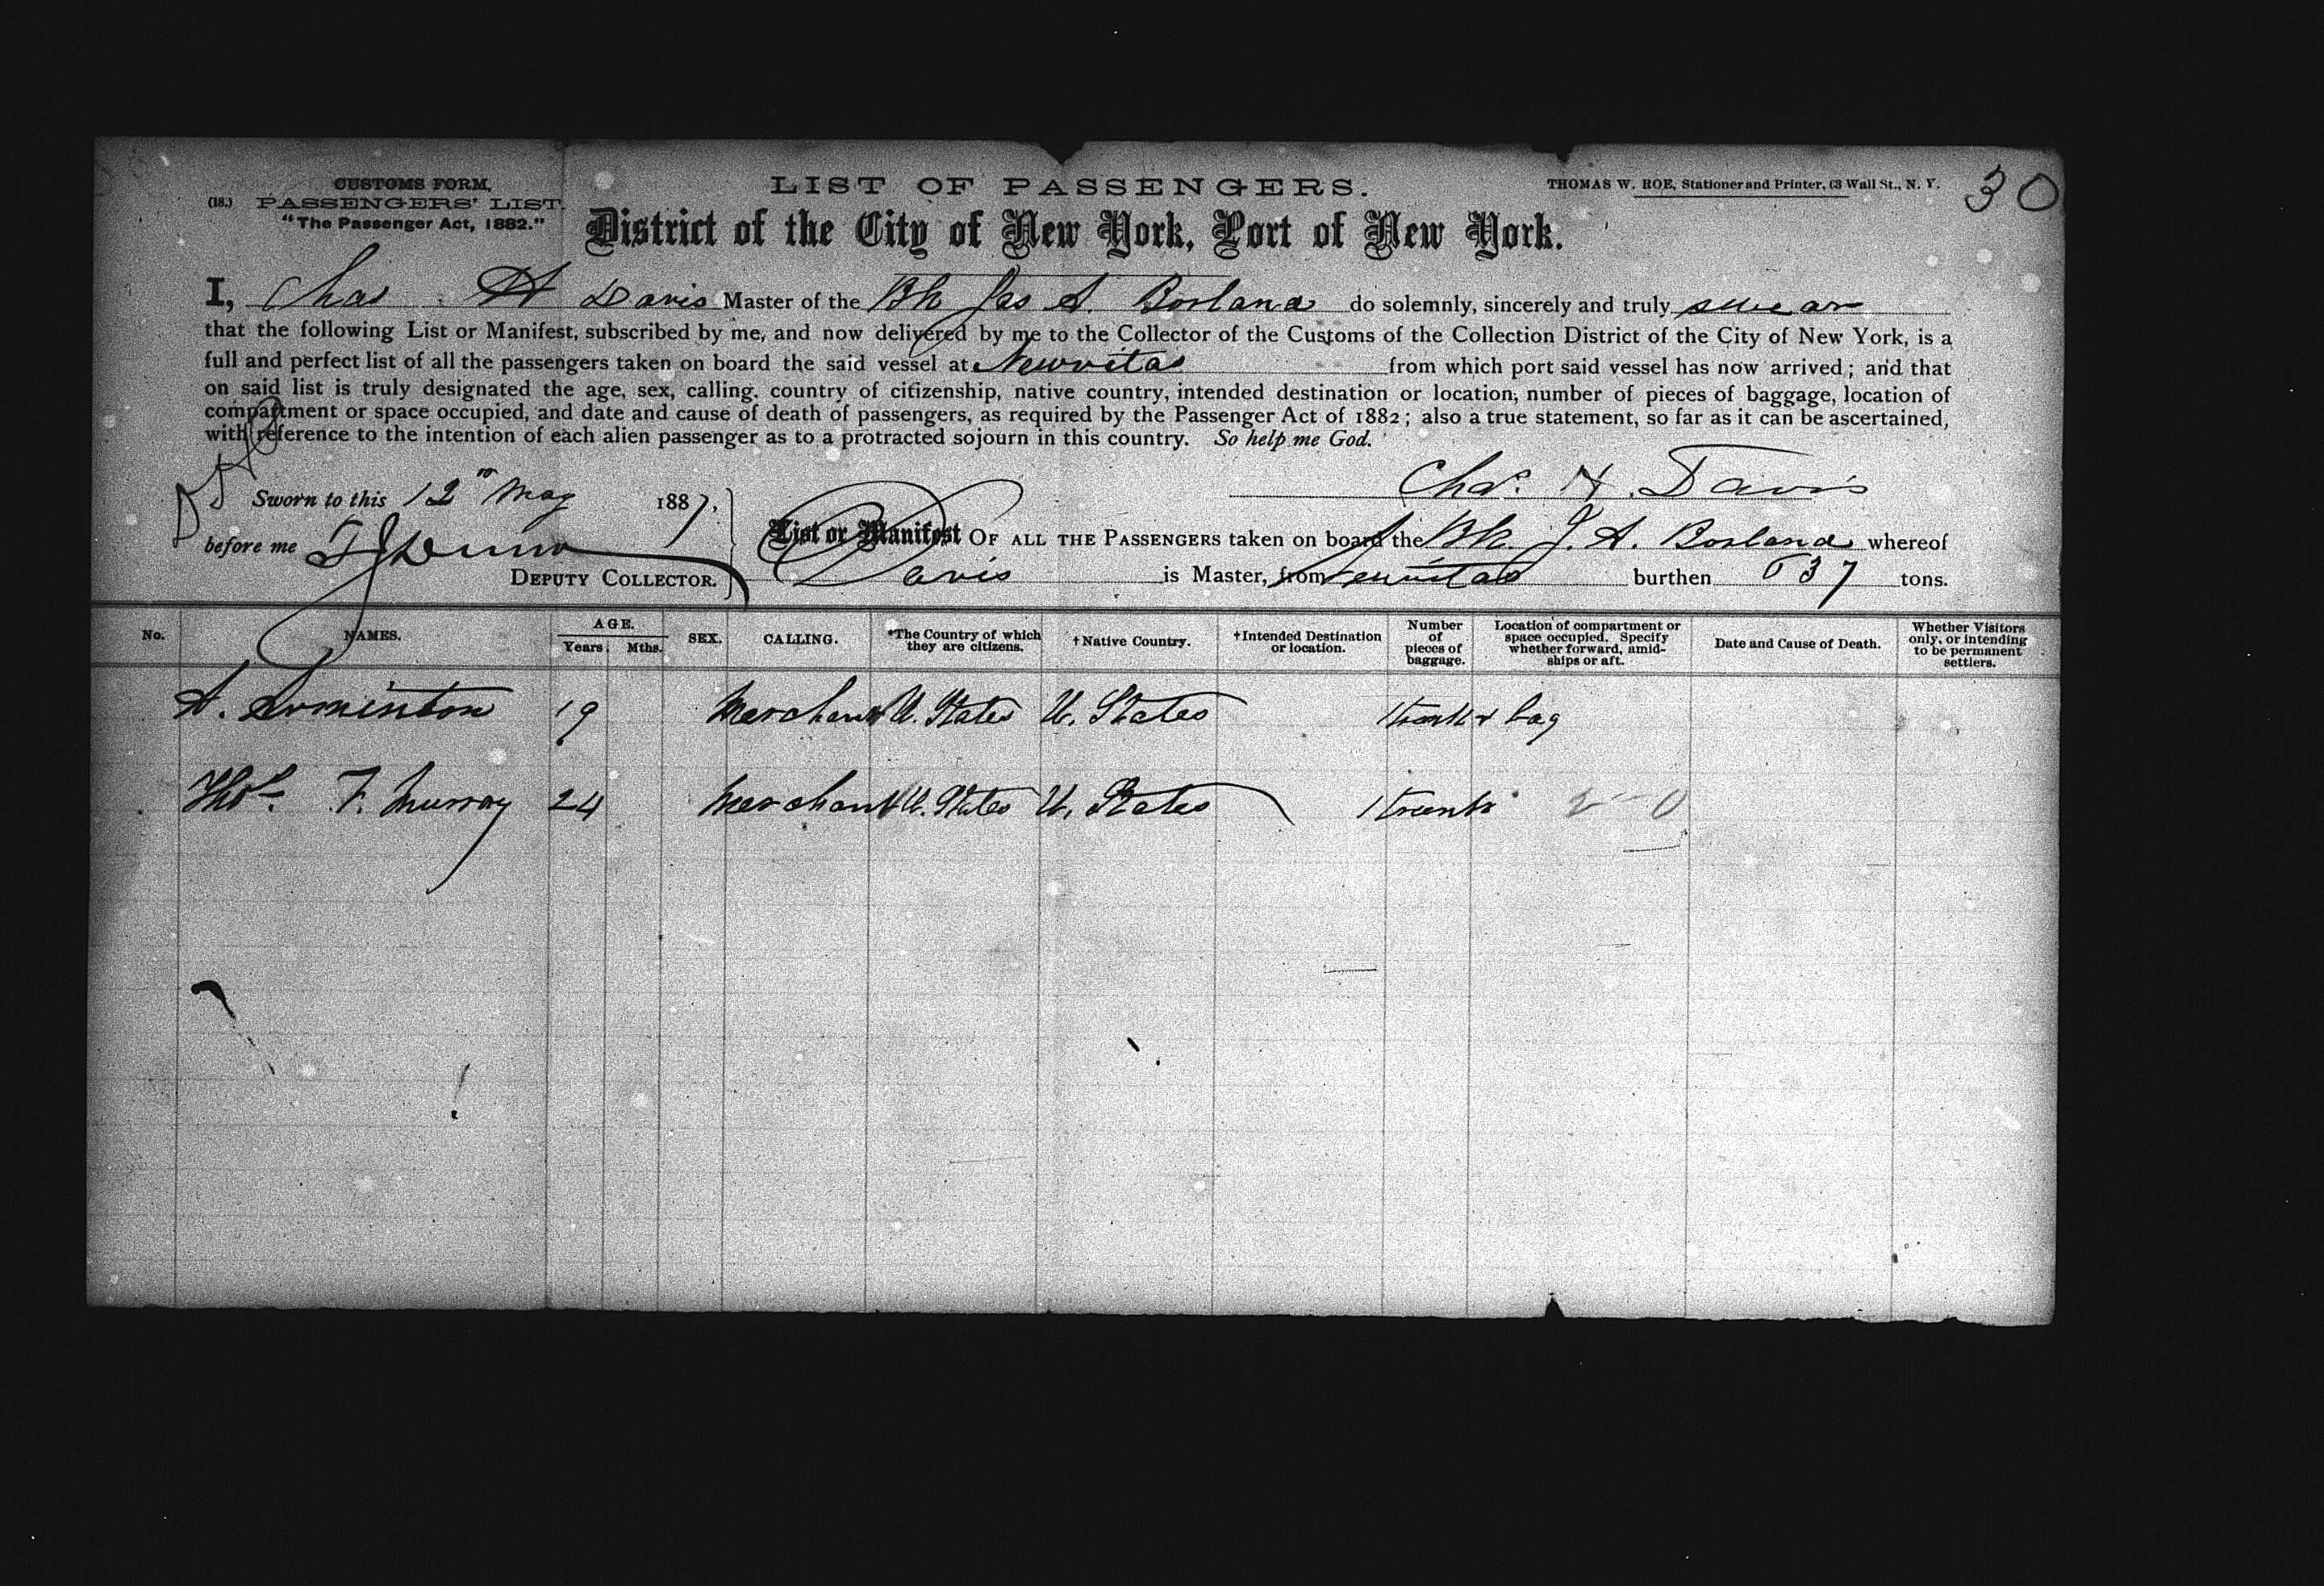 CUSTOMS FORM,
(18.) PASSENGERS' LIST.
"The Passenger Act, 1882."
LIST OF PASSENGERS.
THOMAS W. ROE, Stationer and Printer, 63 Wall St., N. Y.
30
District of the City of New York, Port of New York.
I, Chas H Davis Master of the Bk Jas A. Borland do solemnly, sincerely and truly swear
that the following List or Manifest, subscribed by me, and now delivered by me to the Collector of the Customs of the Collection District of the City of New York, is a
full and perfect list of all the passengers taken on board the said vessel at Neuvitas from which port said vessel has now arrived; and that
on said list is truly designated the age, sex, calling, country of citizenship, native country, intended destination or location, number of pieces of baggage, location of
compartment or space occupied, and date and cause of death of passengers, as required by the Passenger Act of 1882; also a true statement, so far as it can be ascertained,
with reference to the intention of each alien passenger as to a protracted sojourn in this country. So help me God.
Chas. H. Davis
Sworn to this 12th May 1887,
before me
DEPUTY COLLECTOR.
List or Manifest OF ALL THE PASSENGERS taken on board the Bk. J. A. Borland whereof
Davis is Master, from Neuvitas burthen 637 tons.
No. NAMES. AGE. Years. Mths. SEX. CALLING. *The Country of which they are citizens. †Native Country. †Intended Destination or location. Number of pieces of baggage. Location of compartment or space occupied. Specify whether forward, amidships or aft. Date and Cause of Death. Whether Visitors only, or intending to be permanent settlers.
A. Arminton 19 Merchant U. States U. States 1 trunk & bag
Thos. F. Murray 24 Merchant U. States U. States 1 trunk 2-0